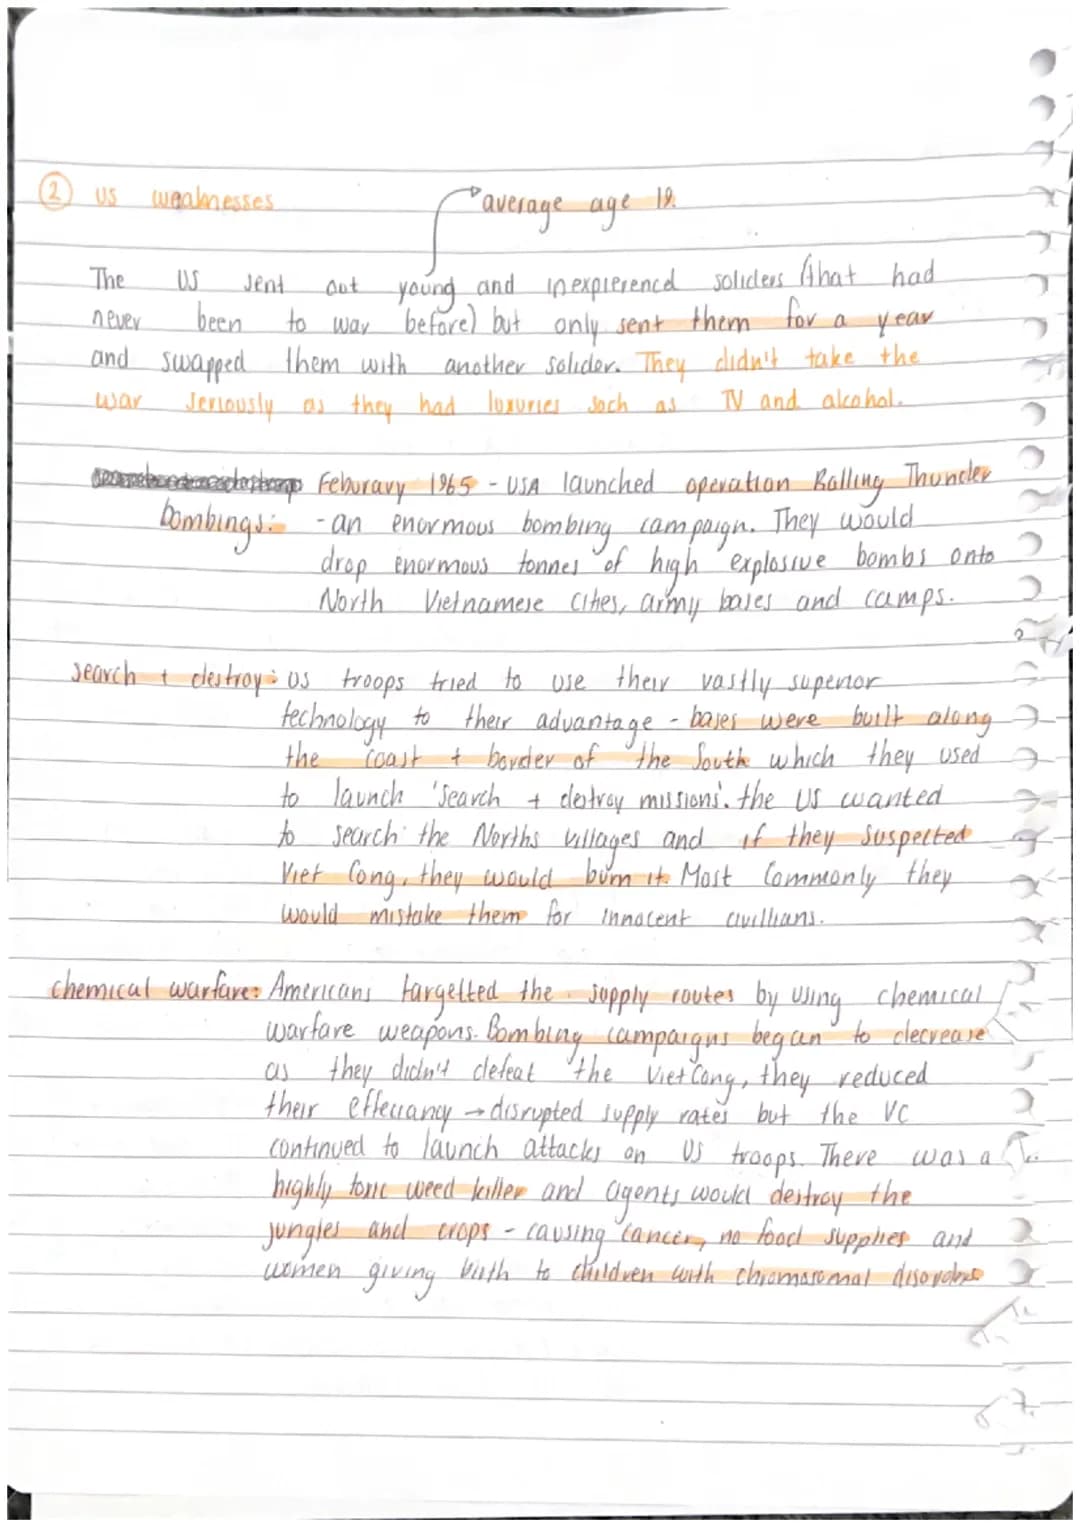 2 US weaknesses
average age 19.
The US sent out young and inexpierenced soliders (that had
never been to war before) but only sent them for a year
and swapped them with another solider. They didn't take the
war seriously as they had luxuries such as TV and alcohol.
bombings: Feburary 1965 - USA launched operation Rolling Thunder
- an enormous bombing campaign. They would
drop enormous tonnes of high explosive bombs onto
North Vietnamese cities, army bases and camps.
search + destroy: US troops tried to use their vastly superior
technology to their advantage - bases were built along
the coast + border of the South which they used
to launch 'search + destroy missions'. the US wanted
to search the Norths villages and if they suspected
Viet Cong, they would burn it. Most Commonly they
would mistake them for innocent civillians.
chemical warfare: Americans targetted the supply routes by using chemical
warfare weapons. Bombing campaigns began to decrease
as they didn't defeat the Viet Cong, they reduced
their effeciancy → disrupted supply rates but the VC
continued to launch attacks on US troops. There was a
highly toxic weed killer and agents would destroy the
jungles and crops - causing cancer, no food supplies and
women giving birth to children with chromosomal disorders